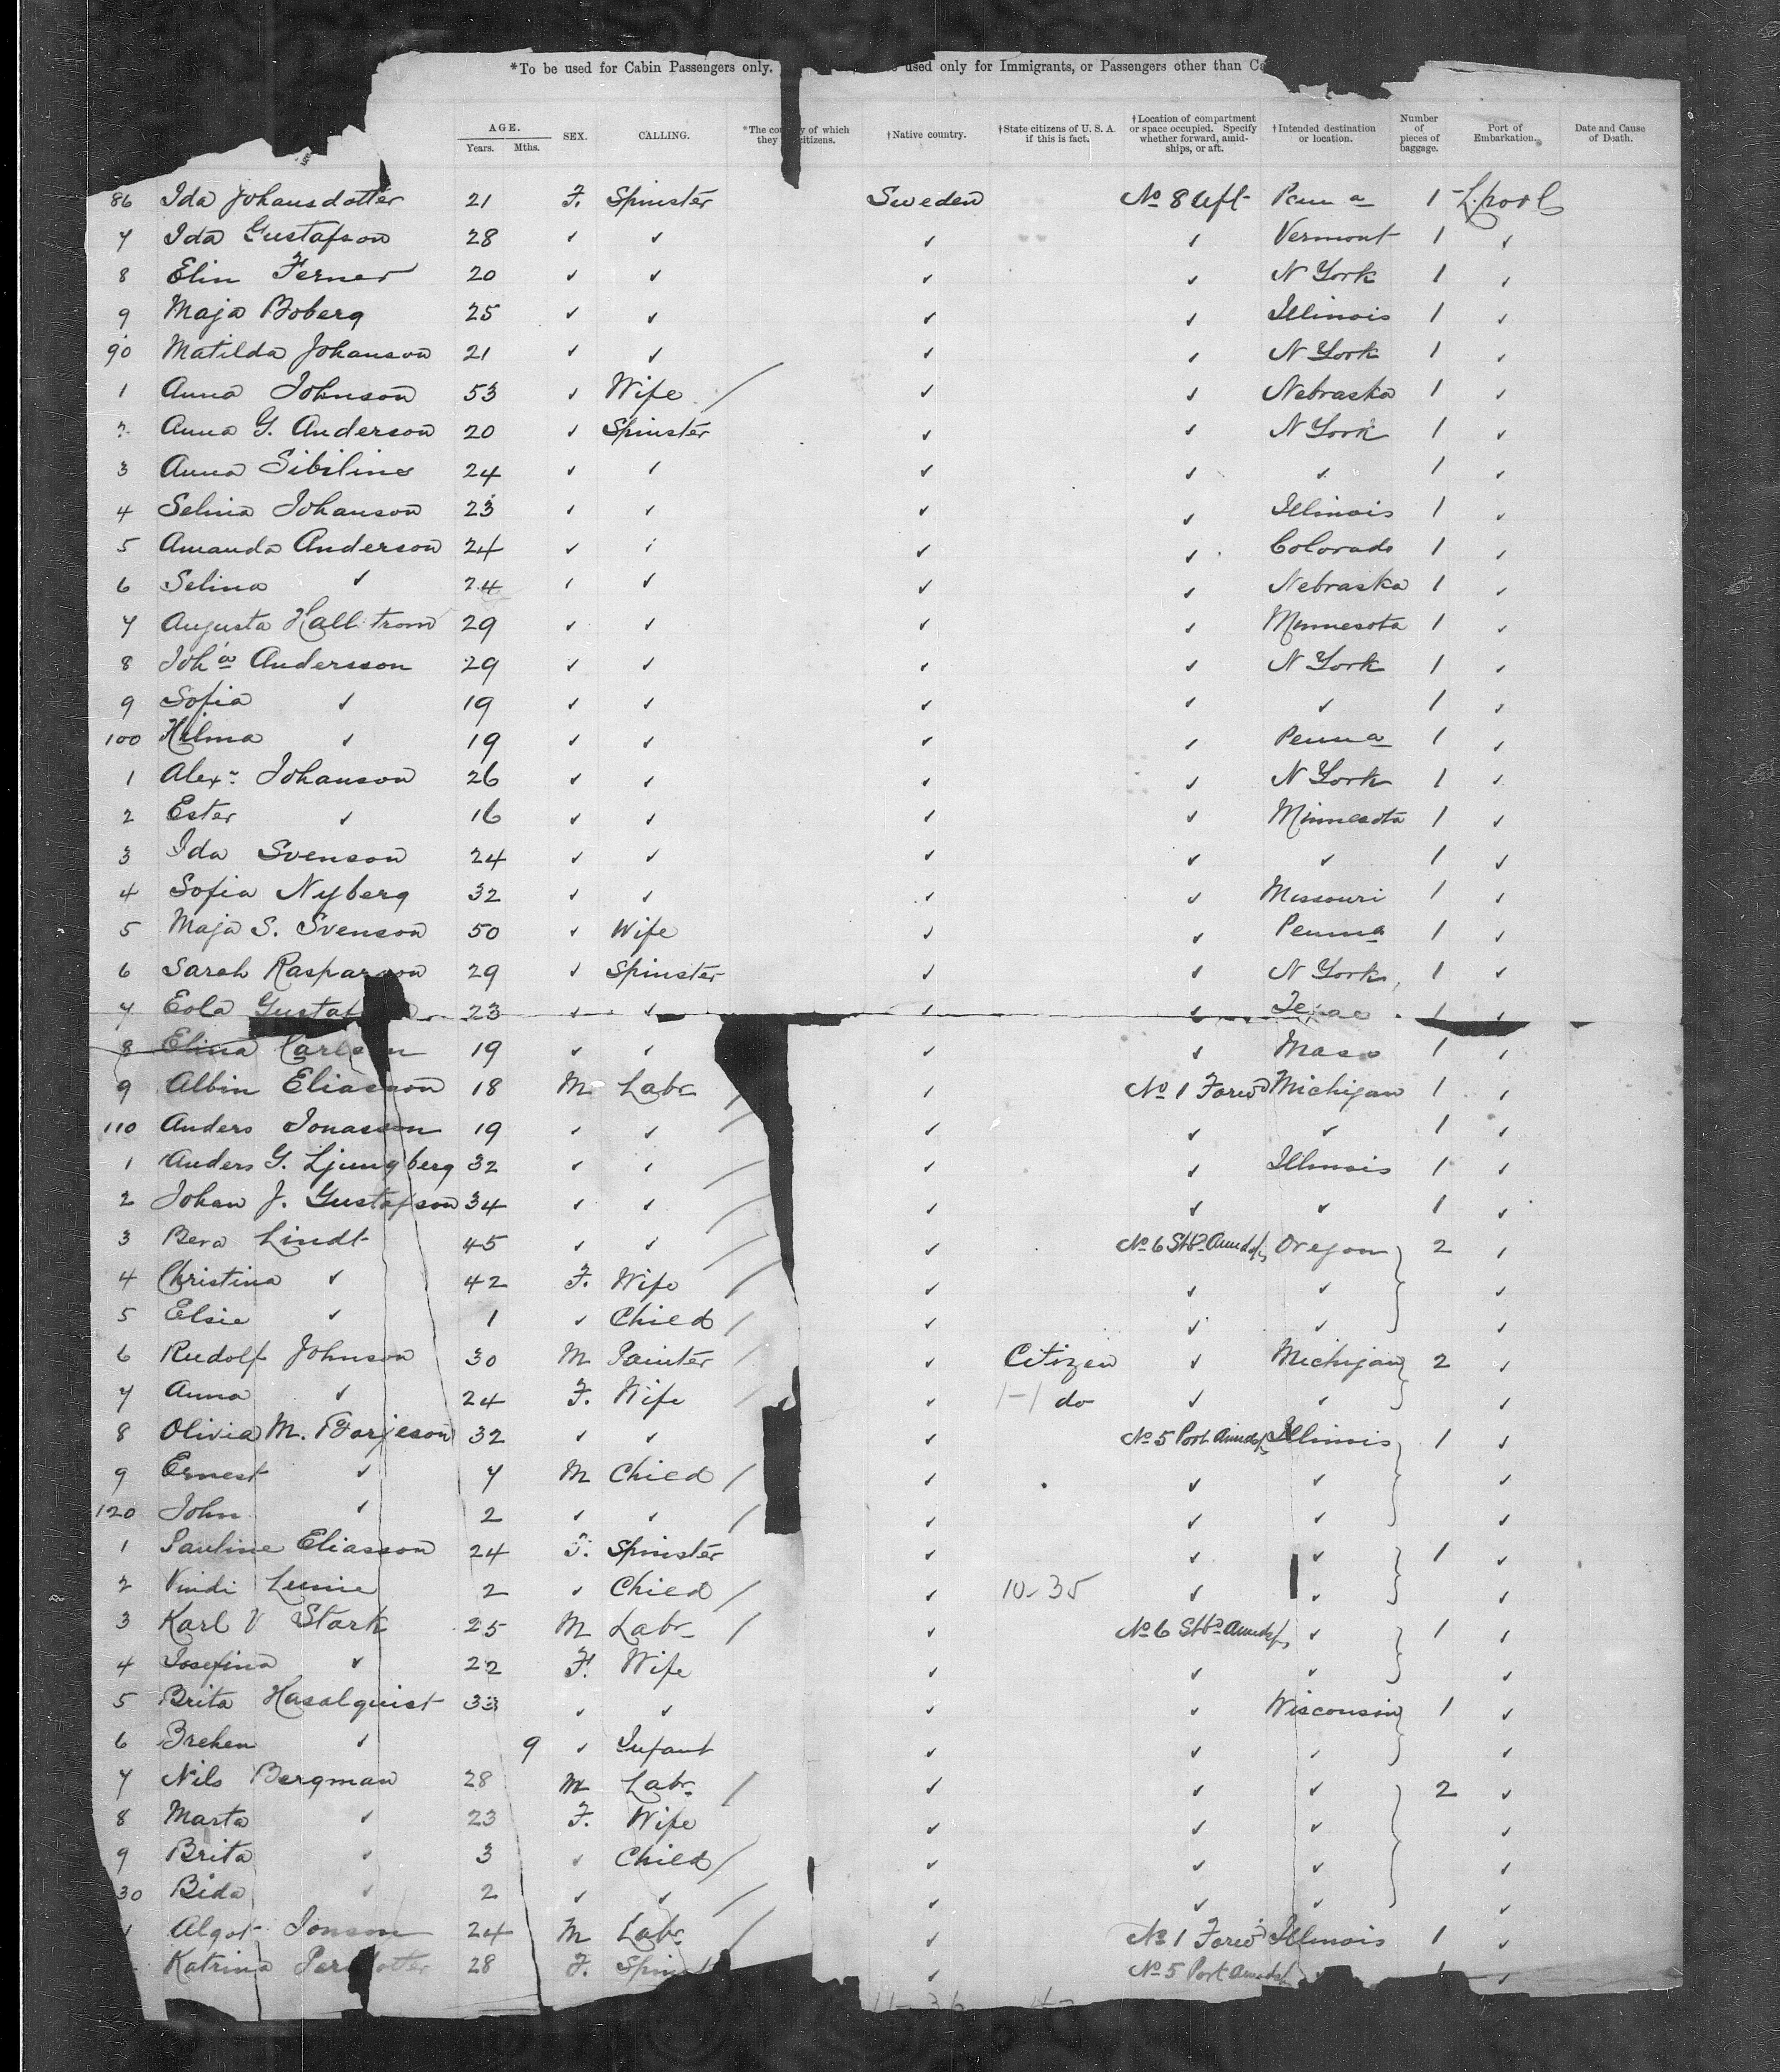 *To be used for Cabin Passengers only. used only for Immigrants, or Passengers other than
AGE.
Years. Mths. SEX. CALLING. *The of which they citizens. †Native country. †State citizens of U. S. A. if this is fact. †Location of compartment or space occupied. Specify whether forward, amidships, or aft. †Intended destination or location. Number of pieces of baggage. Port of Embarkation. Date and Cause of Death.
86 Ida Johansdotter 21 F. Spinster Sweden No 8 Aft Penna 1 L.pool
7 Ida Gustafson 28 ✓ ✓ ✓ ✓ Vermont 1 ✓
8 Elin Ferner 20 ✓ ✓ ✓ ✓ N York 1 ✓
9 Maja Boberg 25 ✓ ✓ ✓ ✓ Illinois 1 ✓
90 Matilda Johanson 21 ✓ ✓ ✓ ✓ N York 1 ✓
1 Anna Johnson 53 ✓ Wife / ✓ ✓ Nebraska 1 ✓
2 Anna G. Anderson 20 ✓ Spinster ✓ ✓ N York 1 ✓
3 Anna 24 ✓ ✓ ✓ ✓ ✓ 1 ✓
4 Selina Johanson 23 ✓ ✓ ✓ ✓ Illinois 1 ✓
5 Amanda Anderson 24 ✓ ✓ ✓ ✓ Colorado 1 ✓
6 Selina ✓ 24 ✓ ✓ ✓ ✓ Nebraska 1 ✓
7 Augusta Hallstrom 29 ✓ ✓ ✓ ✓ Minnesota 1 ✓
8 Joha Andersson 29 ✓ ✓ ✓ ✓ N York 1 ✓
9 Sofia ✓ 19 ✓ ✓ ✓ ✓ ✓ 1 ✓
100 Hilma ✓ 19 ✓ ✓ ✓ ✓ Penna 1 ✓
1 Alexr Johanson 26 ✓ ✓ ✓ ✓ N York 1 ✓
2 Ester ✓ 16 ✓ ✓ ✓ ✓ Minnesota 1 ✓
3 Ida Svenson 24 ✓ ✓ ✓ ✓ ✓ 1 ✓
4 Sofia Nyberg 32 ✓ ✓ ✓ ✓ Missouri 1 ✓
5 Maja S. Svenson 50 ✓ Wife ✓ ✓ Penna 1 ✓
6 Sarah 29 ✓ Spinster ✓ ✓ N York 1 ✓
7 Eola 23 ✓ ✓ ✓ ✓ Texas 1 ✓
8 Elina Carlson 19 ✓ ✓ ✓ ✓ Mass 1 ✓
9 Albin Eliasson 18 M Labr / ✓ No 1 Forwd Michigan 1 ✓
110 Anders Jonasson 19 ✓ ✓ / ✓ ✓ ✓ 1 ✓
1 Anders G. Ljungberg 32 ✓ ✓ / ✓ ✓ Illinois 1 ✓
2 Johan J. Gustafson 34 ✓ ✓ / ✓ ✓ ✓ 1 ✓
3 Bera Lindt 45 ✓ ✓ / ✓ No 6 Stbd Amids Oregon 2 ✓
4 Christina ✓ 42 F. Wife / ✓ ✓ ✓ ✓
5 Elsie ✓ 1 ✓ Child / ✓ ✓ ✓ ✓
6 Rudolf Johnson 30 M Painter / ✓ Citizen ✓ Michigan 2 ✓
7 Anna ✓ 24 F. Wife / ✓ 1-1 do ✓ ✓ ✓
8 Olivia M. Borjeson 32 ✓ ✓ ✓ No 5 Port Amids Illinois 1 ✓
9 Ernest ✓ 7 M Child / ✓ ✓ ✓ ✓
120 John ✓ 2 ✓ ✓ / ✓ ✓ ✓ ✓
1 Pauline Eliasson 24 F. Spinster ✓ ✓ ✓ 1 ✓
2 2 ✓ Child / ✓ 10-35 ✓ ✓ ✓
3 Karl V Stark 25 M Labr / ✓ No 6 Stbd Amids ✓ 1 ✓
4 Josefina ✓ 22 F. Wife ✓ ✓ ✓ ✓
5 Brita Hasalquist 33 ✓ ✓ ✓ ✓ Wisconsin 1 ✓
6 Breken ✓ 9 ✓ Infant ✓ ✓ ✓ ✓
7 Nils Bergman 28 M Labr / ✓ ✓ ✓ 2 ✓
8 Marta ✓ 23 F. Wife ✓ ✓ ✓ ✓
9 Brita ✓ 3 ✓ Child / ✓ ✓ ✓ ✓
30 Bida ✓ 2 ✓ ✓ / ✓ ✓ ✓ ✓
1 Algot Jonson 24 M Labr / ✓ No 1 Forwd Illinois 1 ✓
Katrina 28 F. ✓ No 5 Port Amids 1 ✓
11-36